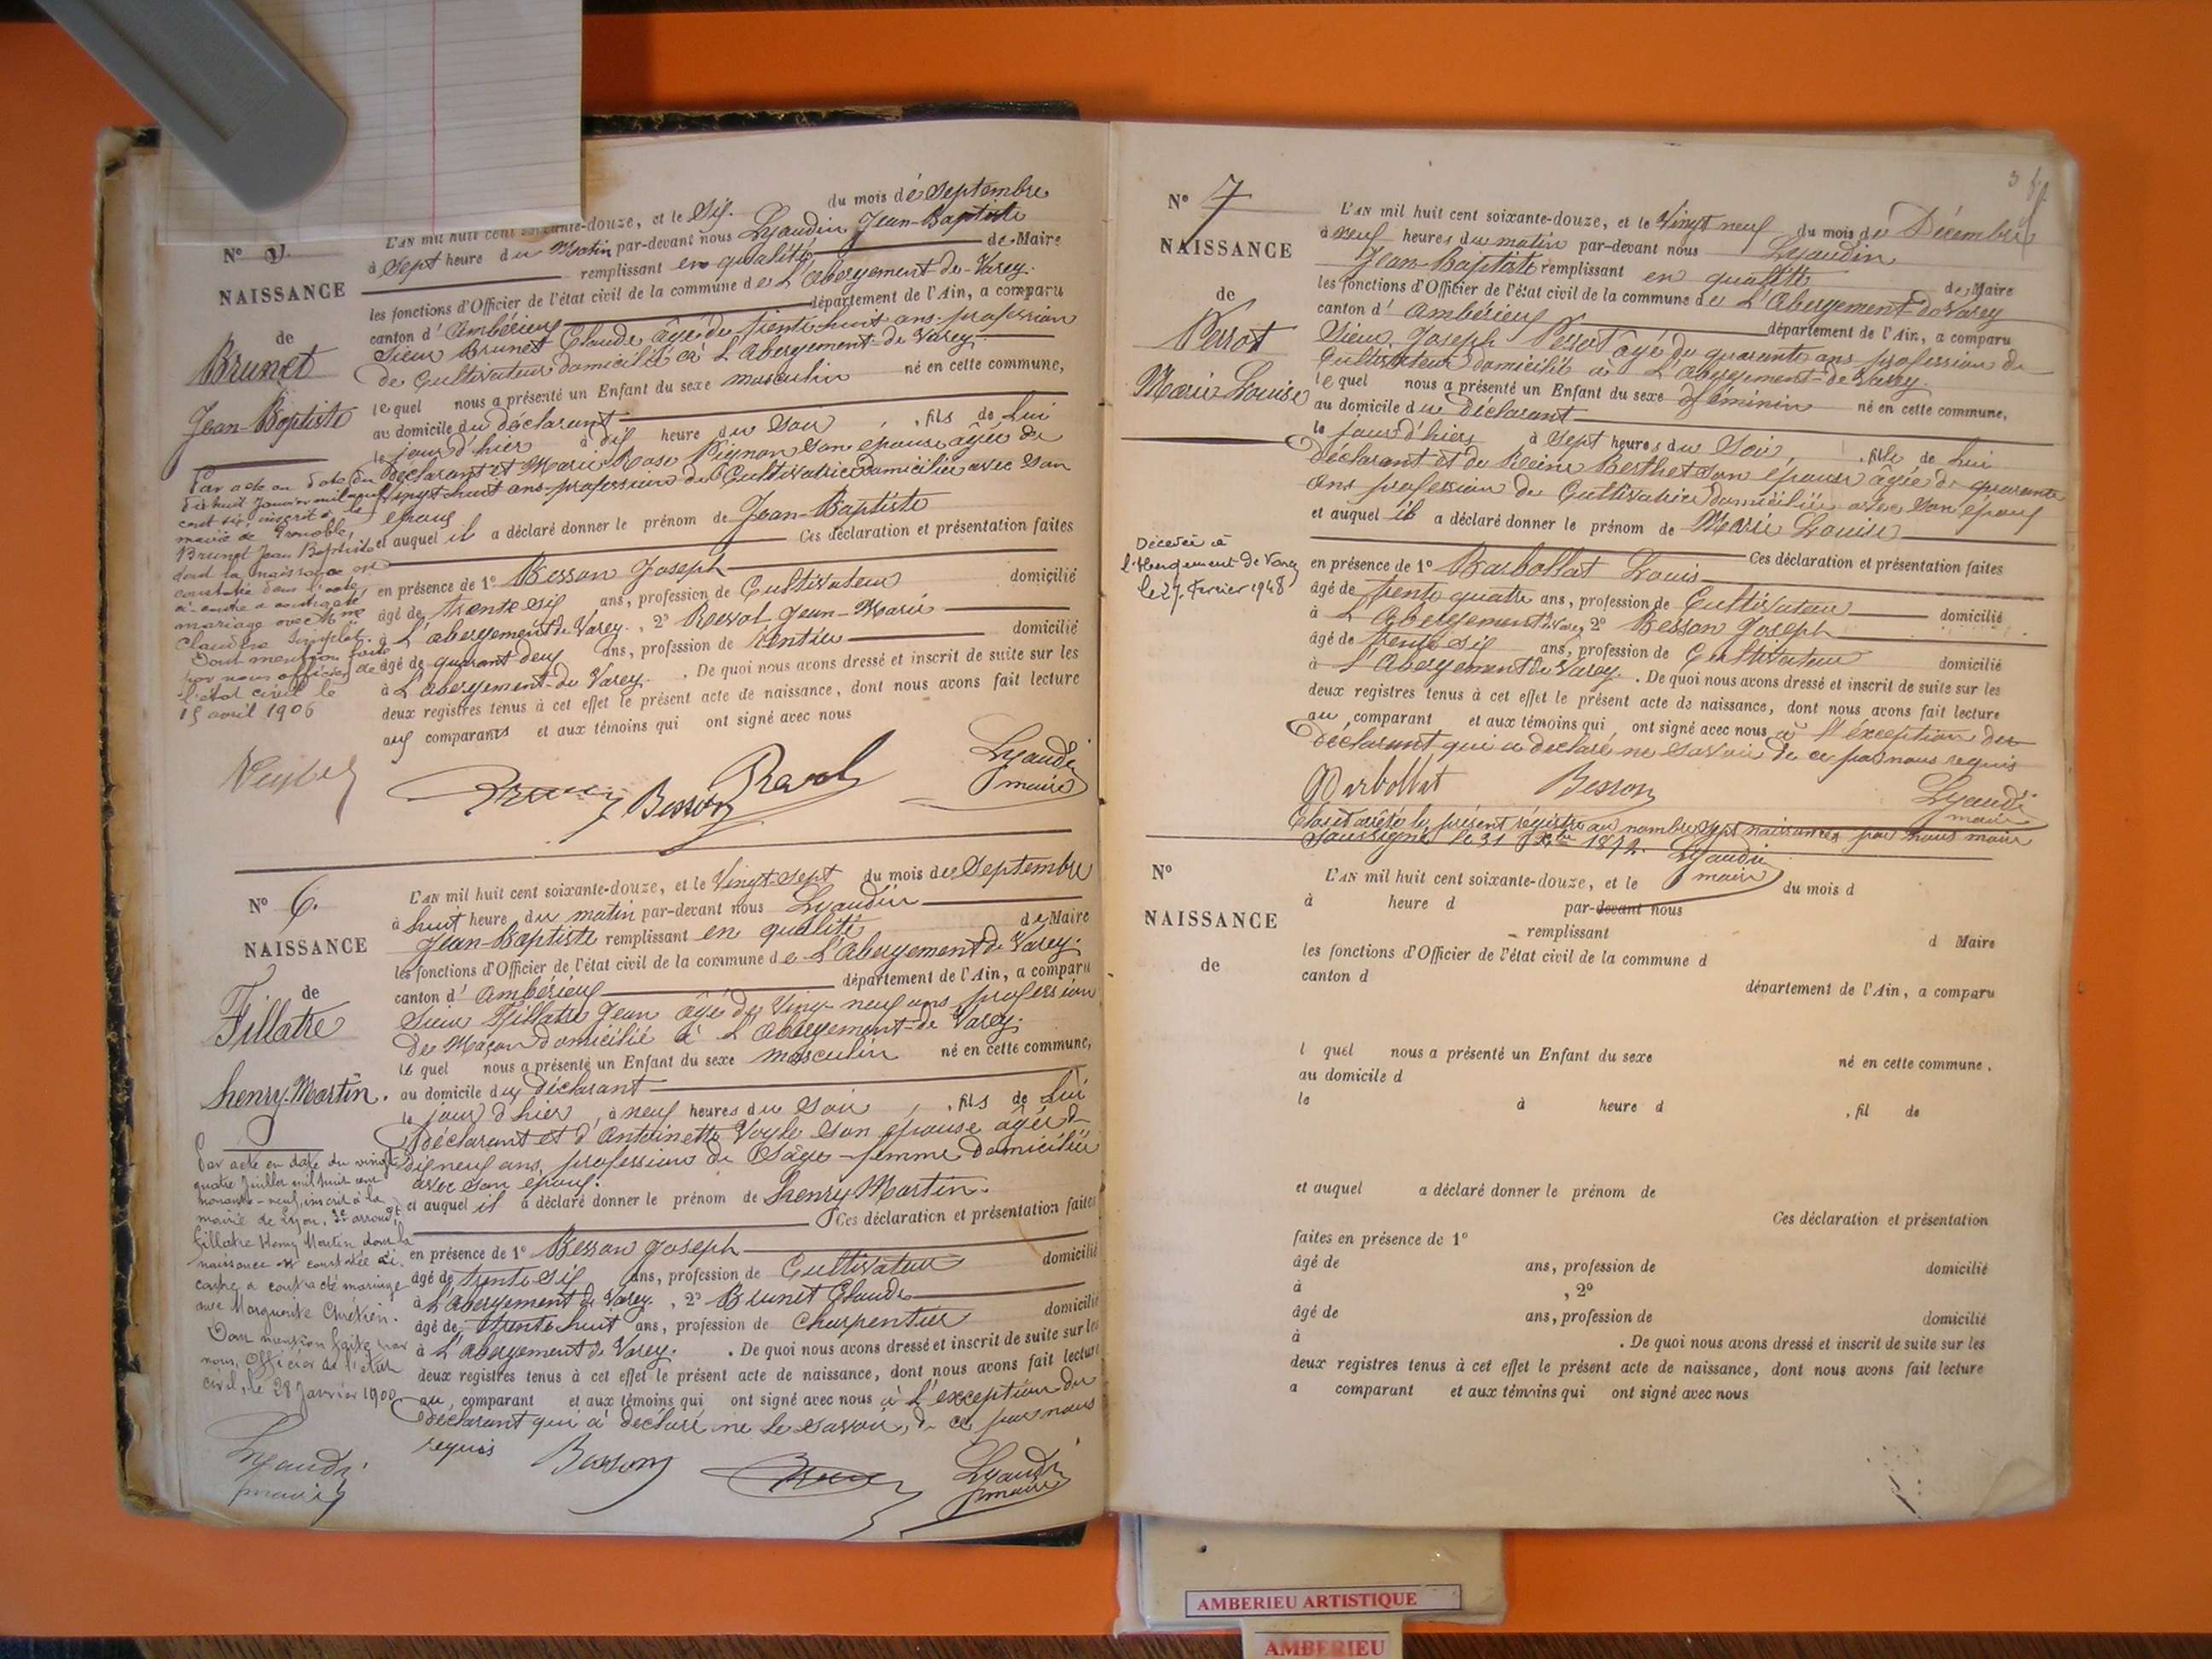 L'AN mil huit cent soixante-douze, et le Six. du mois de Septembre
à Sept heure du Matin par-devant nous Lyaudin Jean-Baptiste
remplissant en qualité de Maire
les fonctions d'Officier de l'état civil de la commune de L'abergement de Varey.
canton d'Ambérieux département de l'Ain, a comparu
Sieur Brunet Claude âgé de trente huit ans profession
de Cultivateur domicilié à L'abergement de Varey.
lequel nous a présenté un Enfant du sexe masculin né en cette commune,
au domicile du déclarant
le jour d'hier à dix heure du Soir, fils de lui
déclarant et Marie Rose Pignon son épouse âgée de
vingt huit ans profession de Cultivatrice domiciliée avec son
époux
et auquel il a déclaré donner le prénom de Jean-Baptiste
Ces déclaration et présentation faites
en présence de 1° Besson Joseph domicilié
âgé de trente six ans, profession de Cultivateur
à L'abergement de Varey, 2° Jean-Marie
âgé de quarant deux ans, profession de rentier domicilié
à L'abergement de Varey. De quoi nous avons dressé et inscrit de suite sur les
deux registres tenus à cet effet le présent acte de naissance, dont nous avons fait lecture
aux comparants et aux témoins qui ont signé avec nous
Besson Lyaudin
maire
N°
NAISSANCE
de
Brunet
Jean-Baptiste
Par acte en date du
dix huit Janvier mil neuf
cent six inscrit à la
mairie de Grenoble,
Brunet Jean Baptiste
dont la naissance est
constatée dans l'acte
ci-contre a contracté
mariage avec
Claudine
Dont mention faite
par nous officier de
l'état civil le
15 avril 1906
N° 6.
NAISSANCE
de
Fillatre
henry-Martin.
L'AN mil huit cent soixante-douze, et le Vingt-Sept du mois de Septembre
à huit heure du matin par-devant nous Lyaudin
Jean-Baptiste remplissant en qualité de Maire
les fonctions d'Officier de l'état civil de la commune de L'Abergement de Varey.
canton d'Ambérieux département de l'Ain, a comparu
Sieur Fillatre Jean âgé de Ving-neuf ans profession
de Maçon domicilié à L'abergement-de Varey.
lequel nous a présenté un Enfant du sexe masculin né en cette commune,
au domicile du déclarant
le jour d'hier, à neuf heures du Soir, fils de lui
déclarant et d'Antoinette son épouse âgée de
neuf ans, profession de Sage-femme domiciliée
avec son époux.
et auquel il a déclaré donner le prénom de henry Martin.
Ces déclaration et présentation faites
en présence de 1° Besson Joseph domicilié
âgé de trente six ans, profession de Cultivateur
à L'abergement de Varey, 2° Brunet Claude
âgé de trente huit ans, profession de Charpentier domicilié
à L'abergement de Varey. De quoi nous avons dressé et inscrit de suite sur les
deux registres tenus à cet effet le présent acte de naissance, dont nous avons fait lecture
au comparant et aux témoins qui ont signé avec nous à l'exception du
déclarant qui a déclaré ne le savoir, de ce par nous
requis Besson Lyaudin
maire
Par acte en date du vingt
quatre Juillet mil huit cent
nonante-neuf, inscrit à la
mairie de Lyon, 3e arrondt
Fillatre Henry Martin dont la
naissance est constatée ci-
contre a contracté mariage
avec Marguerite Chrétien.
Dont mention faite par
nous, Officier de l'état
civil, le 28 Janvier 1900
Lyaudin
maire
N° 7
NAISSANCE
de
Perrot
Marie Louise
Décédée à
l'Abergement de Varey
le 27 février 1948
L'AN mil huit cent soixante-douze, et le Vingt neuf du mois de Décembre
à neuf heures du matin par-devant nous Lyaudin
Jean-Baptiste remplissant en qualité de Maire
les fonctions d'Officier de l'état civil de la commune de L'Abergement-de Varey
canton d'Ambérieux département de l'Ain, a comparu
Sieur Joseph Perrot âgé de quarante ans profession de
Cultivateur domicilié à L'Abergement-de Varey.
lequel nous a présenté un Enfant du sexe féminin né en cette commune,
au domicile du Déclarant
le jour d'hier à Sept heures du Soir, fille de lui
déclarant et de Reine Berthet son épouse âgée de quarante
ans profession de Cultivatrice domiciliée avec son époux
et auquel il a déclaré donner le prénom de Marie Louise
Ces déclaration et présentation faites
en présence de 1° Barbollat Louis
âgé de trente quatre ans, profession de Cultivateur domicilié
à L'Abergement de Varey 2° Besson Joseph
âgé de trente six ans, profession de Cultivateur domicilié
à L'Abergement de Varey. De quoi nous avons dressé et inscrit de suite sur les
deux registres tenus à cet effet le présent acte de naissance, dont nous avons fait lecture
au comparant et aux témoins qui ont signé avec nous à l'exception du
déclarant qui a déclaré ne savoir de ce par nous requis
Barbollat Besson Lyaudin
maire
Clos et arrêté le présent régistre au nombre Sept naissances par nous maire
Soussigné le 31 Xbre 1872. Lyaudin
maire
N°
NAISSANCE
de
L'AN mil huit cent soixante-douze, et le du mois d
à heure d par-devant nous
remplissant d Maire
les fonctions d'Officier de l'état civil de la commune d
canton d département de l'Ain, a comparu
l quel nous a présenté un Enfant du sexe né en cette commune,
au domicile d
le à heure d , fil de
et auquel a déclaré donner le prénom de
Ces déclaration et présentation
faites en présence de 1°
âgé de ans, profession de domicilié
à , 2°
âgé de ans, profession de domicilié
à . De quoi nous avons dressé et inscrit de suite sur les
deux registres tenus à cet effet le présent acte de naissance, dont nous avons fait lecture
a comparant et aux témoins qui ont signé avec nous
AMBERIEU ARTISTIQUE
AMBERIEU